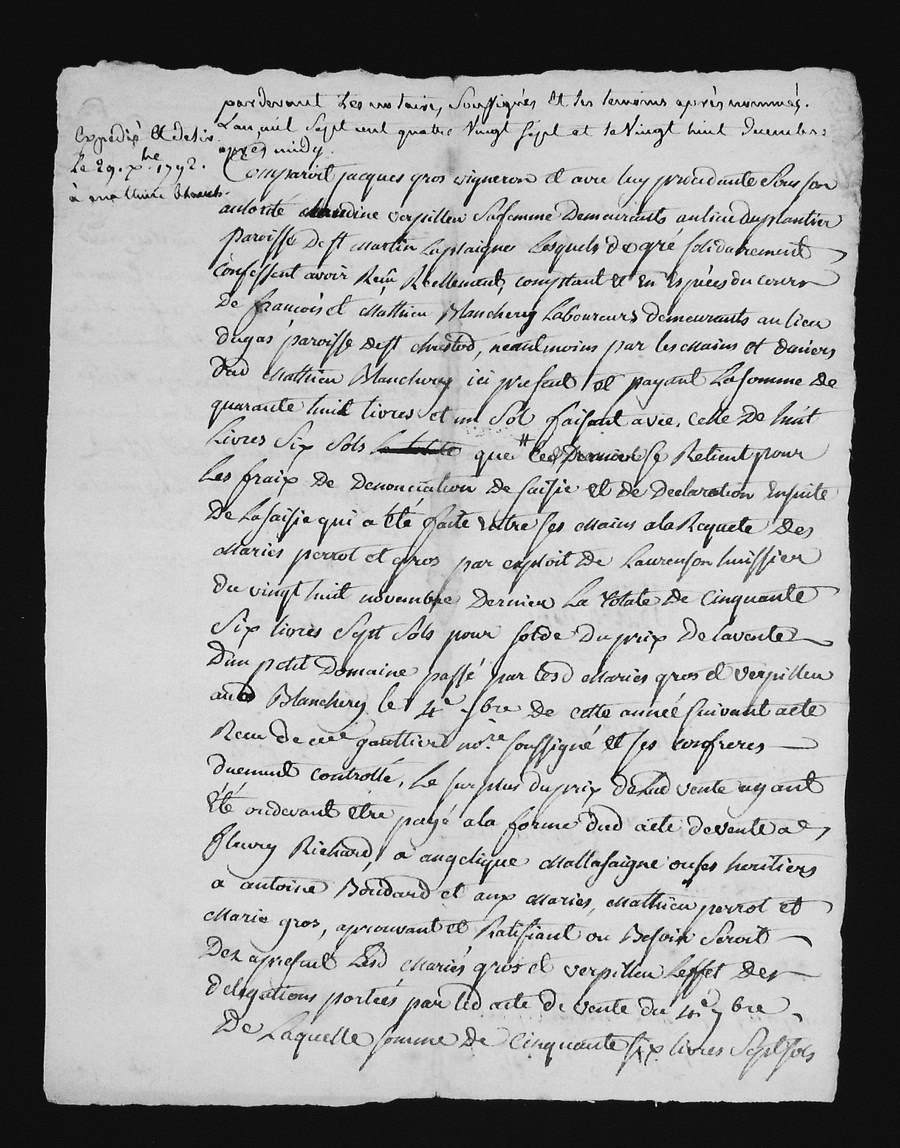 pardevant les notaires soussignés et les temoins après nommés.
L'an mil sept cent quatre vingt sept et le vingt huit decembre
après midy
Expédié et
Le 29. Xbre 1792.
à Mathieu Blanch.
Comparoit jacques gros vigneron et avec luy procedante sous son
autorité claudine verpilleu sa femme Demeurants au lieu du plantier
paroisse de st Martin Laplaigne Lesquels de gré solidairement
Confessent avoir Reçu Réellement, comptant et En Espèces du cours
De françois et Mathieu Blanchery Laboureurs demeurants au lieu
dugas paroisse de st christod, néantmoins par les mains et deniers
dud Mathieu Blanchery ici present et payant La somme de
quarante huit livres et un Sol faisant avec celle De huit
Livres Six Sols que ce Dernier se Retient pour
Les fraix De Denonciation De saisie et de Declaration Ensuite
De la saisie qui a été faite entre ses mains a la Requete Des
Mariés perrot et gros par exploit De Laurenson huissier
du vingt huit novembre Dernier La totale de Cinquante
Six livres Sept Sols pour solde Du prix De la vente
D'un petit Domaine passé par lesd Mariés gros et verpilleu
aud Blanchery le 4e 7bre de cette année suivant acte
Recu de me gaultier nore soussigné et ses confreres
duement controllé, Le surplus du prix de Lad vente ayant
été ou devant etre payé a la forme dud acte de vente a
fleury Richard, a angelique Mallasaigne ou ses heritiers
a antoine Boudard et aux Mariés, Mathieu perrot et
Marie gros, aprouvant et Ratifiant ou Besoin Seroit
Des a present Lesd Mariés gros et verpilleu L'effet des
delegations portées par led acte de vente du 4e 7bre
De Laquelle somme De Cinquante six livres Sept sols